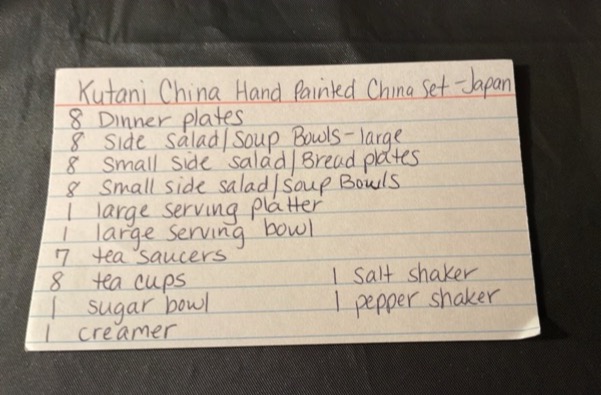 Kutani China Hand Painted China Set - Japan
8 Dinner plates
8 Side Salad/Soup Bowls - large
8 Small Side salad/Bread plates
8 Small side salad/Soup Bowls
1 large serving platter
1 large serving bowl
7 tea saucers
8 tea cups 1 Salt shaker
1 sugar bowl 1 pepper shaker
1 creamer